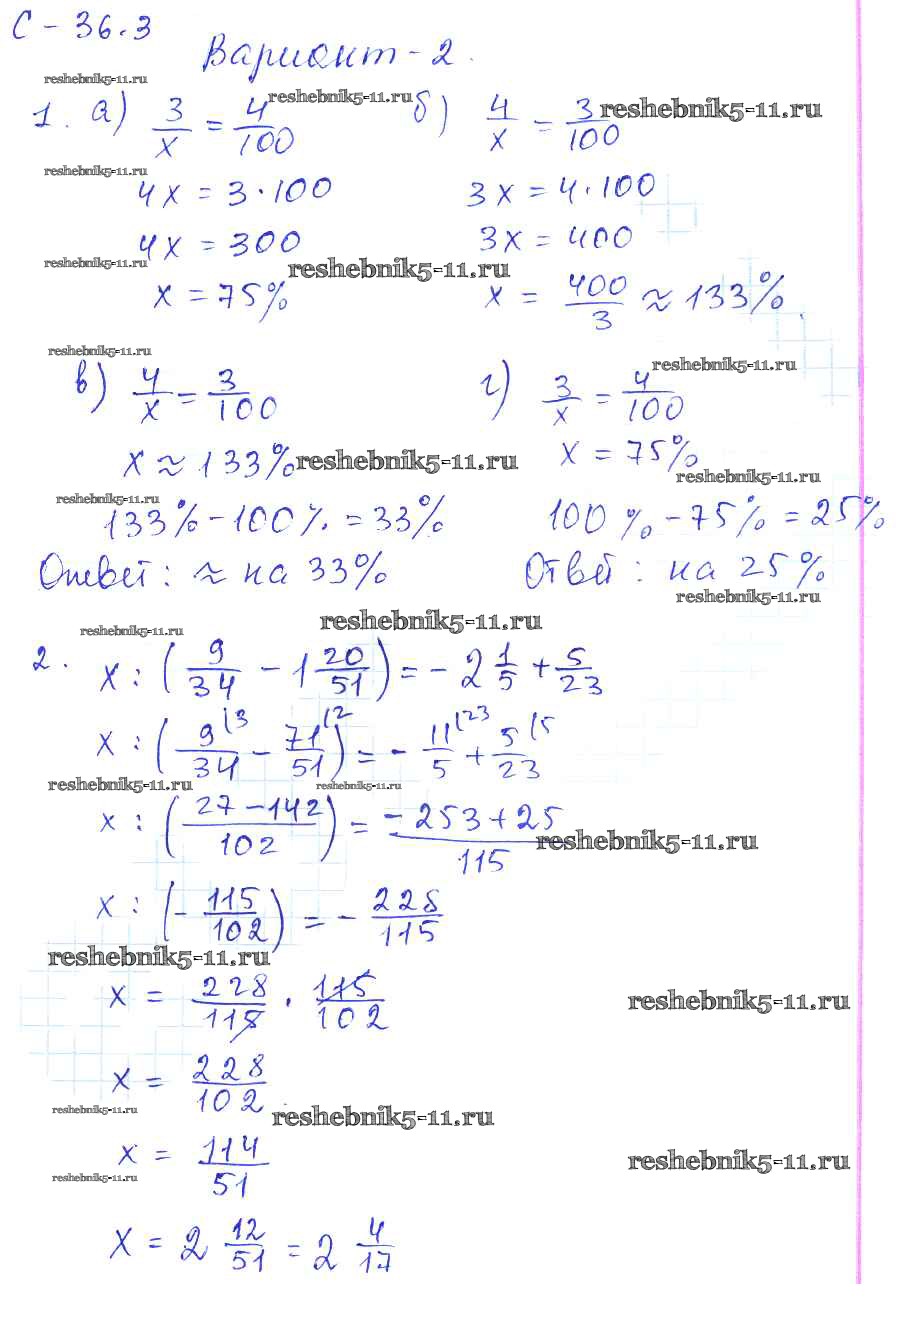 С - 36.3
Вариант - 2.
reshebnik5-11.ru
1. а) 3/x = 4/100 reshebnik5-11.ru б) 4/x = 3/100 reshebnik5-11.ru
reshebnik5-11.ru
4x = 3·100 3x = 4·100
4x = 300 3x = 400
reshebnik5-11.ru reshebnik5-11.ru
x = 75% x = 400/3 ≈ 133%.
reshebnik5-11.ru reshebnik5-11.ru
в) 4/x = 3/100 г) 3/x = 4/100
x ≈ 133% reshebnik5-11.ru x = 75%
reshebnik5-11.ru reshebnik5-11.ru
133% - 100% = 33% 100% - 75% = 25%
Ответ: ≈ на 33% Ответ: на 25%
reshebnik5-11.ru
reshebnik5-11.ru reshebnik5-11.ru
2. x : (9/34 - 1 20/51) = - 2 1/5 + 5/23
x : (9/34 (3 - 71/51 (2) = - 11/5 (23 + 5/23 (5
reshebnik5-11.ru reshebnik5-11.ru
x : ((27 - 142)/102) = (-253 + 25)/115 reshebnik5-11.ru
x : (- 115/102) = - 228/115
reshebnik5-11.ru
x = 228/115 · 115/102 reshebnik5-11.ru
x = 228/102
reshebnik5-11.ru reshebnik5-11.ru
x = 114/51 reshebnik5-11.ru
reshebnik5-11.ru
x = 2 12/51 = 2 4/17